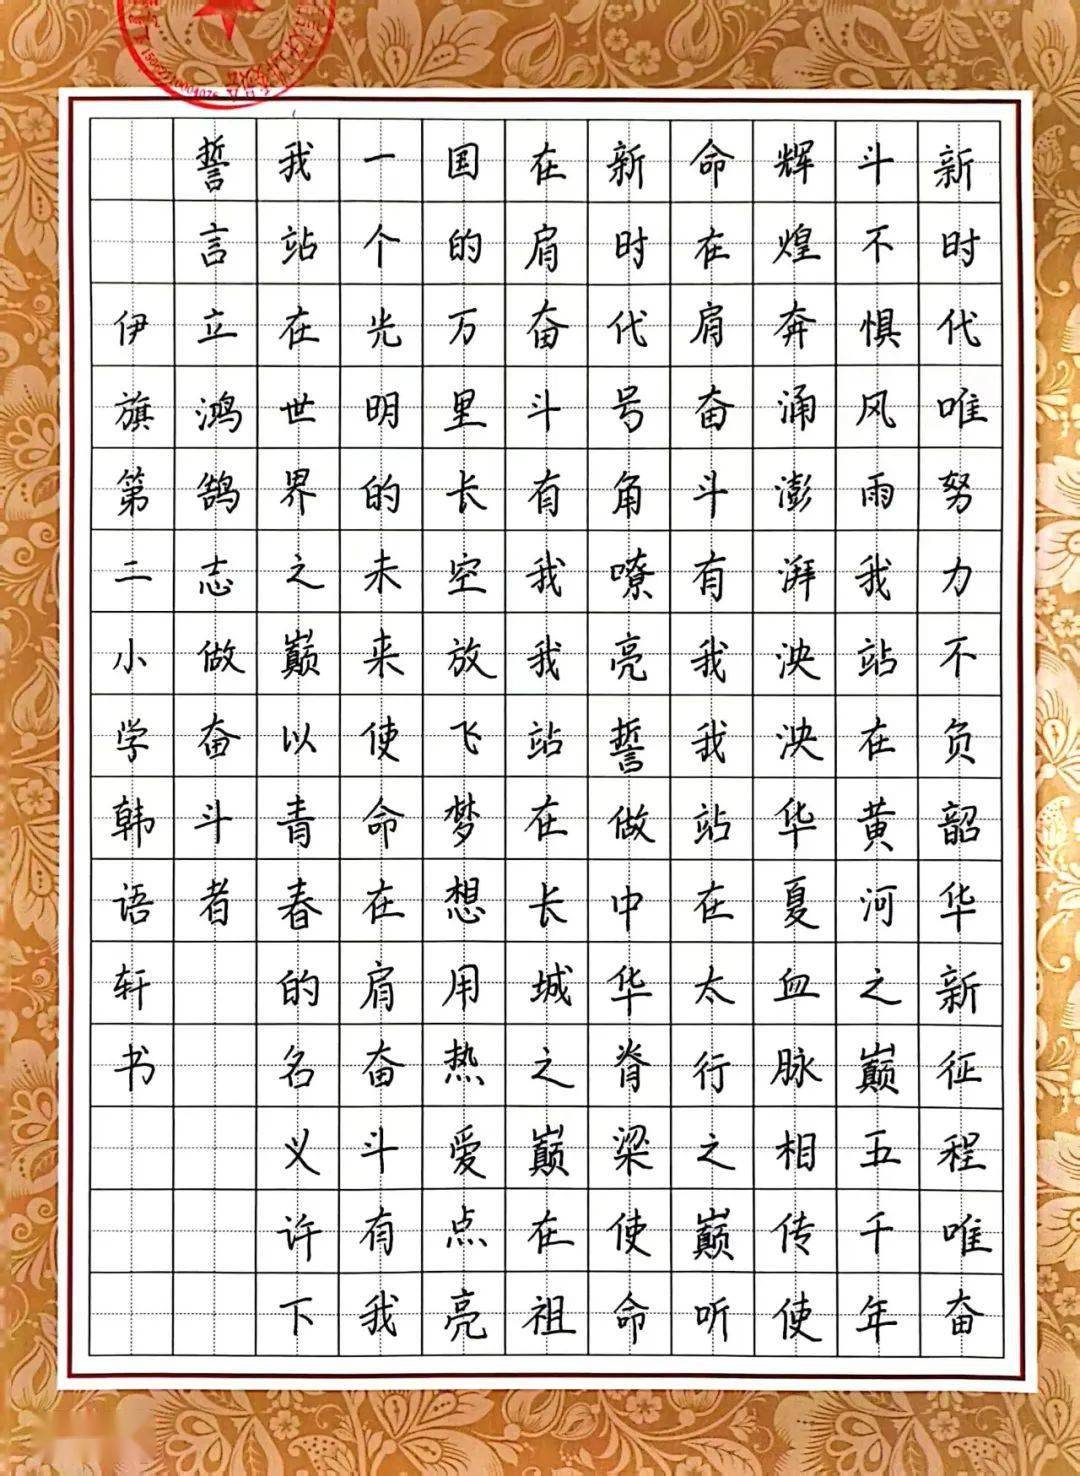 新时代唯努力不负韶华新征程唯奋
斗不惧风雨我站在黄河之巅五千年
辉煌奔涌澎湃泱泱华夏血脉相传使
命在肩奋斗有我我站在太行之巅听
新时代号角嘹亮誓做中华脊梁使命
在肩奋斗有我我站在长城之巅在祖
国的万里长空放飞梦想用热爱点亮
一个光明的未来使命在肩奋斗有我
我站在世界之巅以青春的名义许下
誓言立鸿鹄志做奋斗者
伊旗第二小学韩语轩书